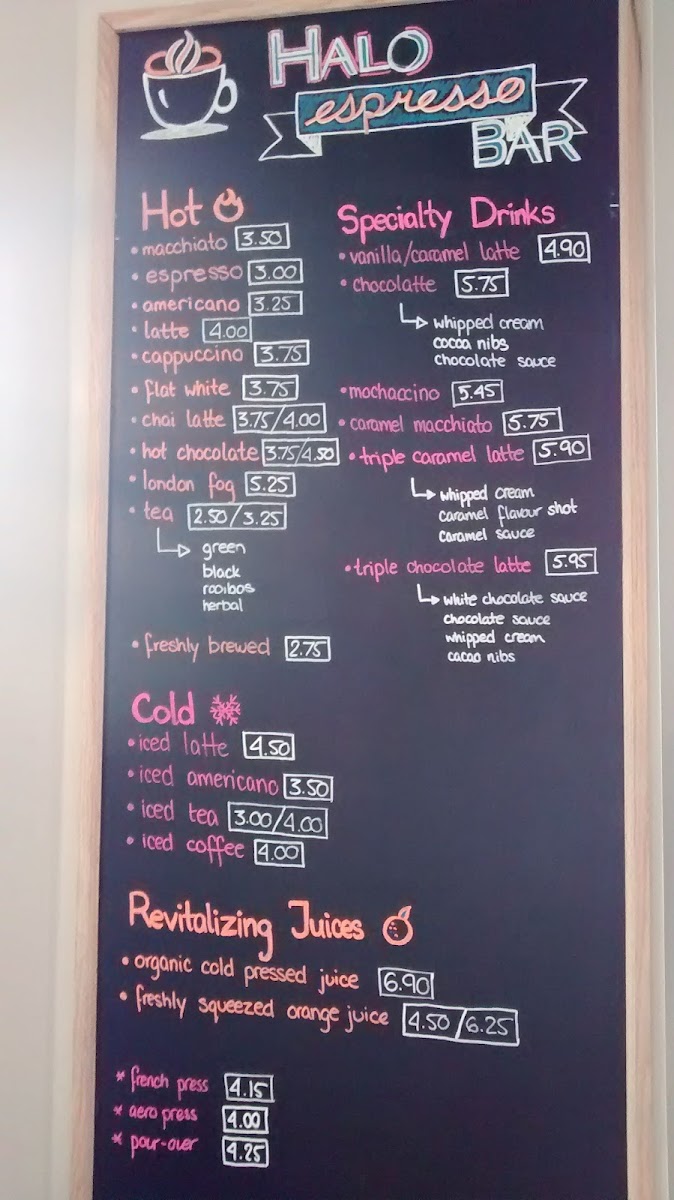 HALO
espresso
BAR
Hot
• macchiato 3.50
• espresso 3.00
• americano 3.25
• latte 4.00
• cappuccino 3.75
• flat white 3.75
• chai latte 3.75/4.00
• hot chocolate 3.75/4.50
• london fog 5.25
• tea 2.50/3.25
green
black
rooibos
herbal
• freshly brewed 2.75
Specialty Drinks
• vanilla/caramel latte 4.90
• chocolatte 5.75
whipped cream
cocoa nibs
chocolate sauce
• mochaccino 5.45
• caramel macchiato 5.75
• triple caramel latte 5.90
whipped cream
caramel flavour shot
caramel sauce
• triple chocolate latte 5.95
white chocolate sauce
chocolate sauce
whipped cream
cacao nibs
Cold
• iced latte 4.50
• iced americano 3.50
• iced tea 3.00/4.00
• iced coffee 4.00
Revitalizing Juices
• organic cold pressed juice 6.90
• freshly squeezed orange juice 4.50/6.25
* french press 4.15
* aero press 4.00
* pour-over 4.25